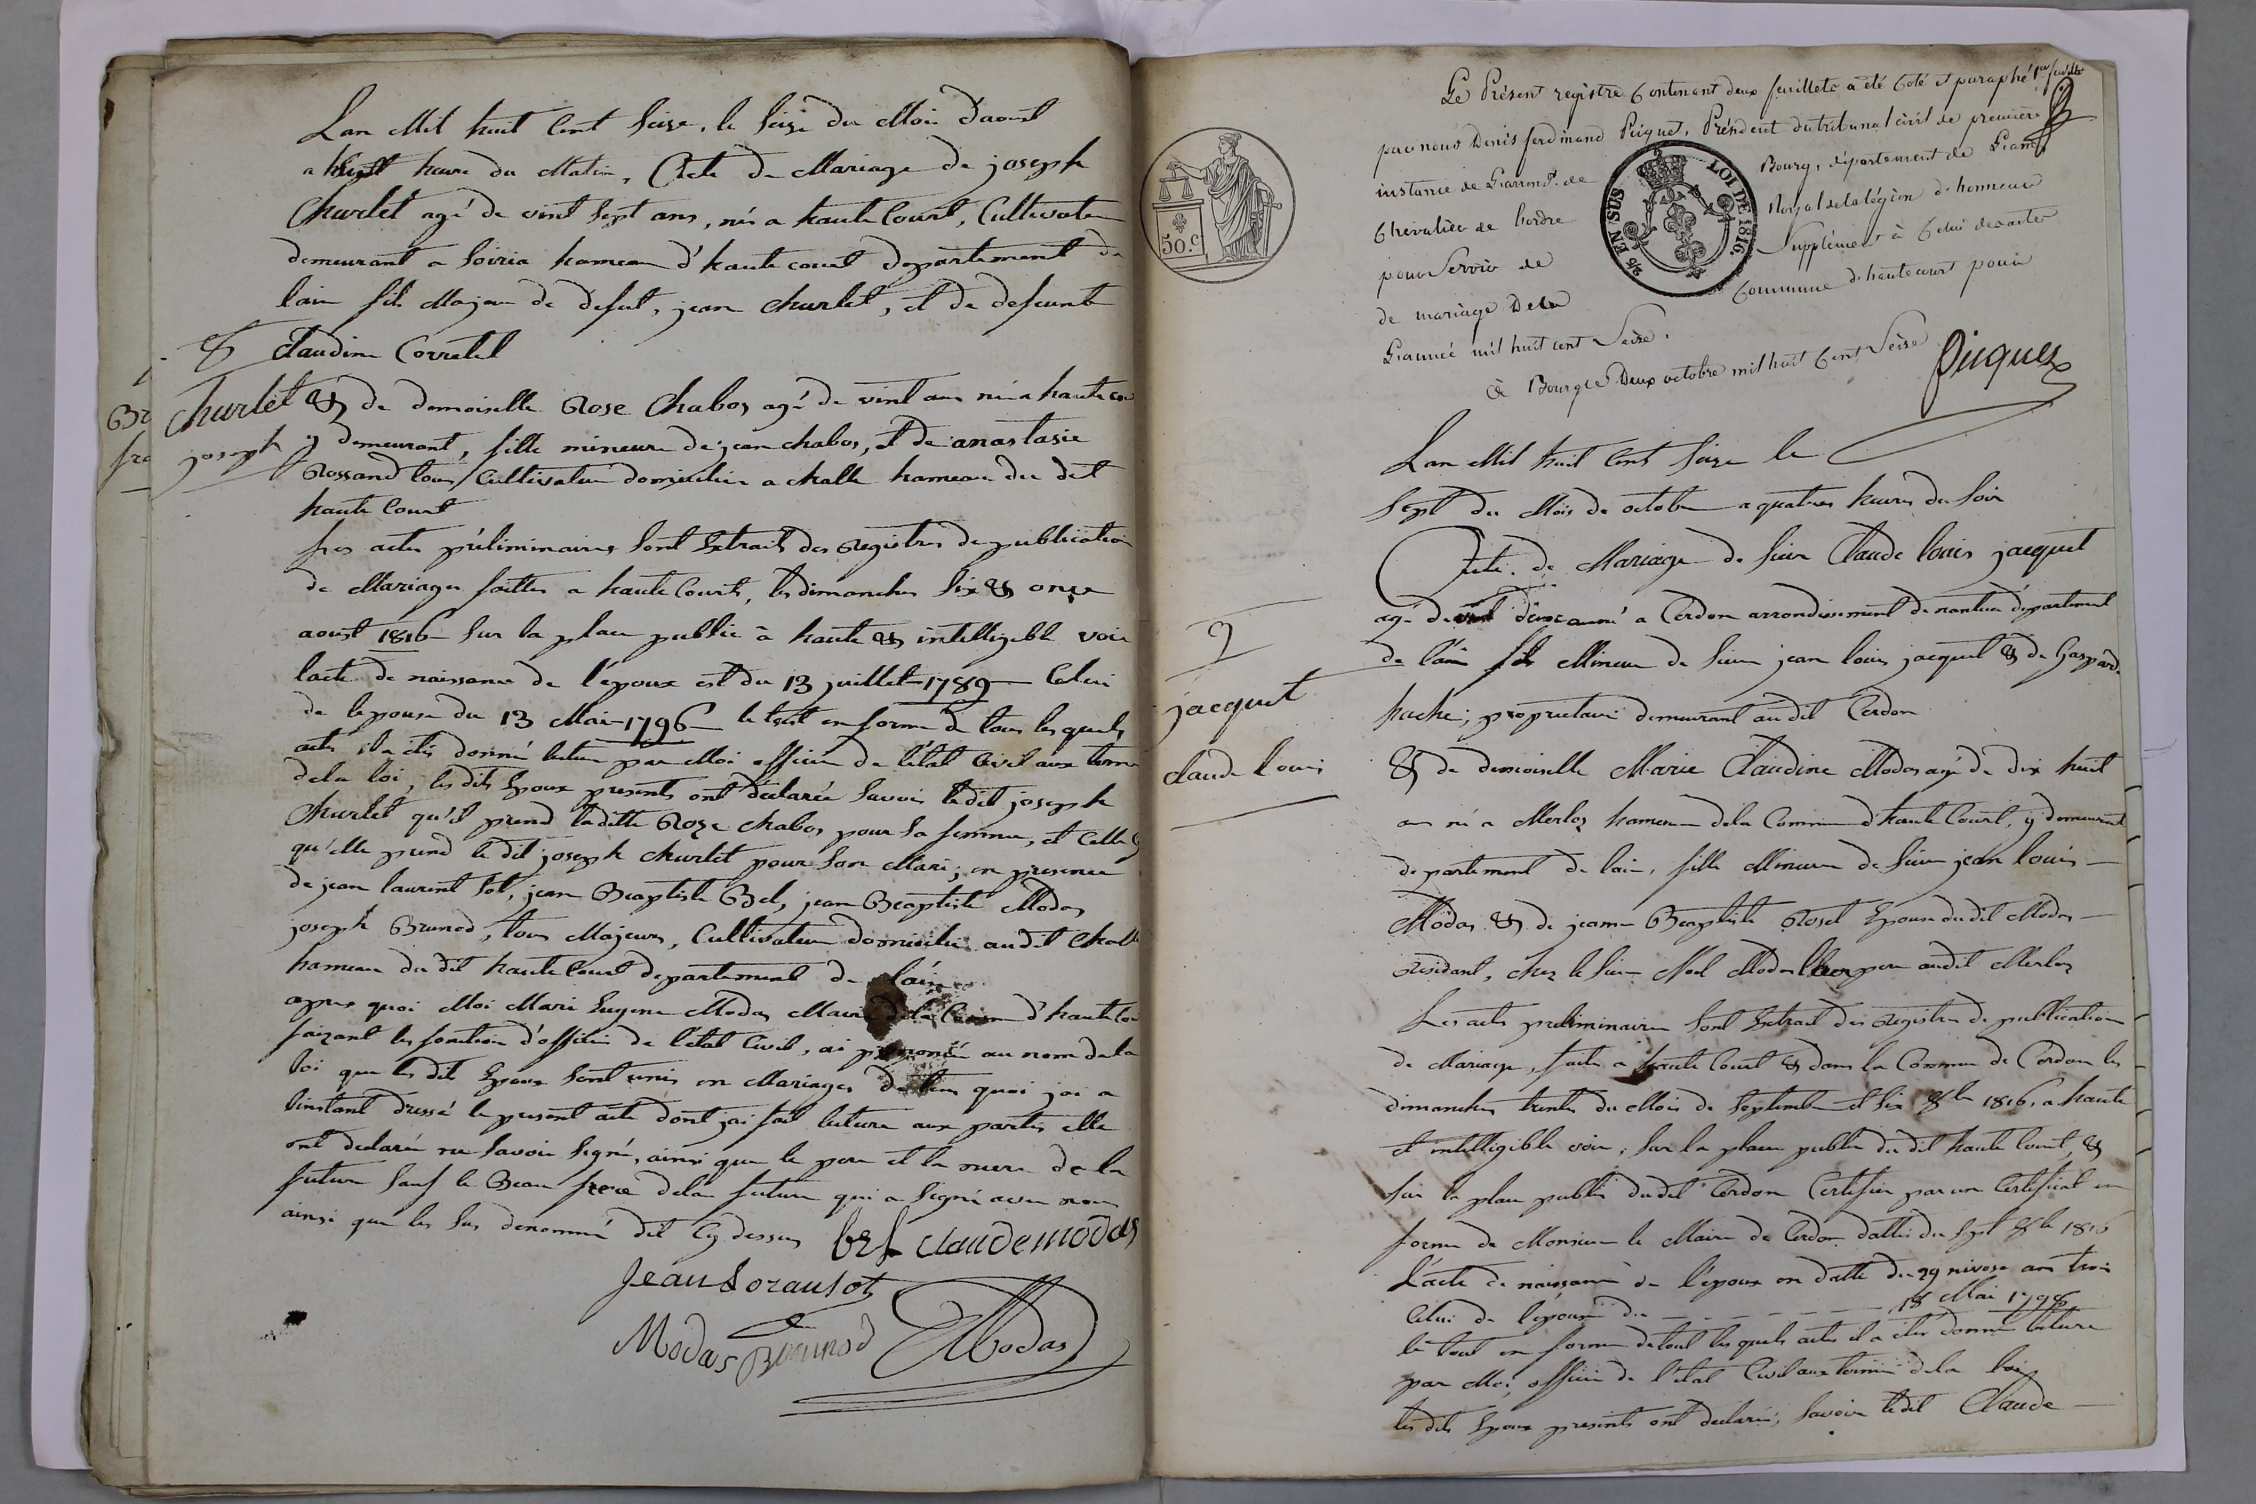 Lan Mil huit Cent Seize, le Seize du Mois d'aoust
a huit heure du Matin, Acte de Mariage de joseph
Churlet agé de vint Sept ans, né a haute Court, Cultivateur
demeurant a Soiria hameau d'haute court departement de
lain fils Majeur de defut, jean Churlet, et de defunte
Claudine Corretel
Churlet
joseph
& de demoiselle Rose Chabos agé de vint ans né a haute cou
y demeurant, fille mineure de jean chabos, et de anastasie
Rossand tous Cultivateur domicilié a challe hameau du dit
haute Court
Les actes préliminaires Sont Extrait des Registres de publication
de Mariages faittes a haute Court, les dimanches Six & onze
aoust 1816 Sur la place public à haute & intelligible voix
lacte de naissance de l'époux est du 13 juillet 1789 Celui
de lepouse du 13 Mai 1796 le tout en forme de tous lesquels
actes il a étés donné lecture par Moi officier de l'état Civil aux terme
dela loi, les dits Epoux presents ont déclarée Savoir ledit joseph
Churlet qu'il prend laditte Roze chabos pour Sa femme, et Celle
qu'elle prend le dit joseph churlet pour Son Mari; en presence
de jean laurent Sot, jean Beaptiste Bel, jean Beaptiste Modas
joseph Brunod, tous Majeurs, Cultivateur domicilié audit Challe
hameau du dit haute Court departement de lain
apres quoi Moi Mari Eugene Modas Maire dela Commune d'haute Cou
faizant les fonction d'officier de l'état Civil, ai prononcé au nom dela
loi que les dit Epoux Sont unis en Mariages de tous quoi jai a
linstant dressé le present acte dont jai fait lecture aux parties elle
ont declarée ne Savoir Signé, ainsi que le pere et la mere de la
future Sauf le Beau frere dela future qui a Signé avec nous
ainsi que les Sus denommé dit Cy dessus bel Claude modas
Jean Loransot
Modas Brunod Modas
Le Présent registre Contenant deux feuillets à été Coté et paraphé 1er feuillet
par nous Denis ferdinand Piquet, Président du tribunal civil de première
instance de Bourg, département de
Chevalier de l'ordre Royal de la légion d'honneur
pour Servir de Supplément à Celui des actes
de mariage Dela Commune d'hautecourt pour
L'année mil huit cent Seize.
à Bourg le Deux octobre mil huit Cent Seize
Picquet
50.c
EN SUS LOI DE 1816.
Lan Mil huit Cent Seize le
Sept du Mois de octobre a quatres heures du Soir
Acte de Mariage de Sieur Claude louis jacquet
né a Cerdon arrondissement de nantua département
de l'ain fils Mineur de Sieur jean louis jacquet & de Gasparde
hache; proprietaire demeurant au dit Cerdon
2
jacquet
claude louis
& de demoiselle Marie Claudine Modas agé de dix huit
ans né a Merloz hameau dela Commune d'haute Court, y demeurant
departement de lain, fille Mineure de Sieur jean louis
Modas & de jeanne Beaptiste Rosel Epouse du dit Modas
Residant, chez le Sieur Noel Modas pere audit Merloz
Les actes preliminaires Sont Extrait des Registres de publication
de Mariage, faite a haute Court & dans la Commune de Cerdon les
dimanches trentes du Mois de Septembre et Six 8bre 1816, a haute
et intelligible voix; Sur la place public du dit haute Court, &
Sur la place public du dit Cerdon Certifier par un Certificat en
forme de Monsieur le Maire de Cerdon datté du Sept 8bre 1816
L'acte de naissance de l'époux en datte du 29 nivose an trois
Celui de l'épouse du 18 Mai 1798
le tout en forme de tout les quels actes il a étés donné lecture
par Moi officier de l'état Civil aux termes dela loi
les dits Epoux presents ont declarés, Savoir ledit Claude